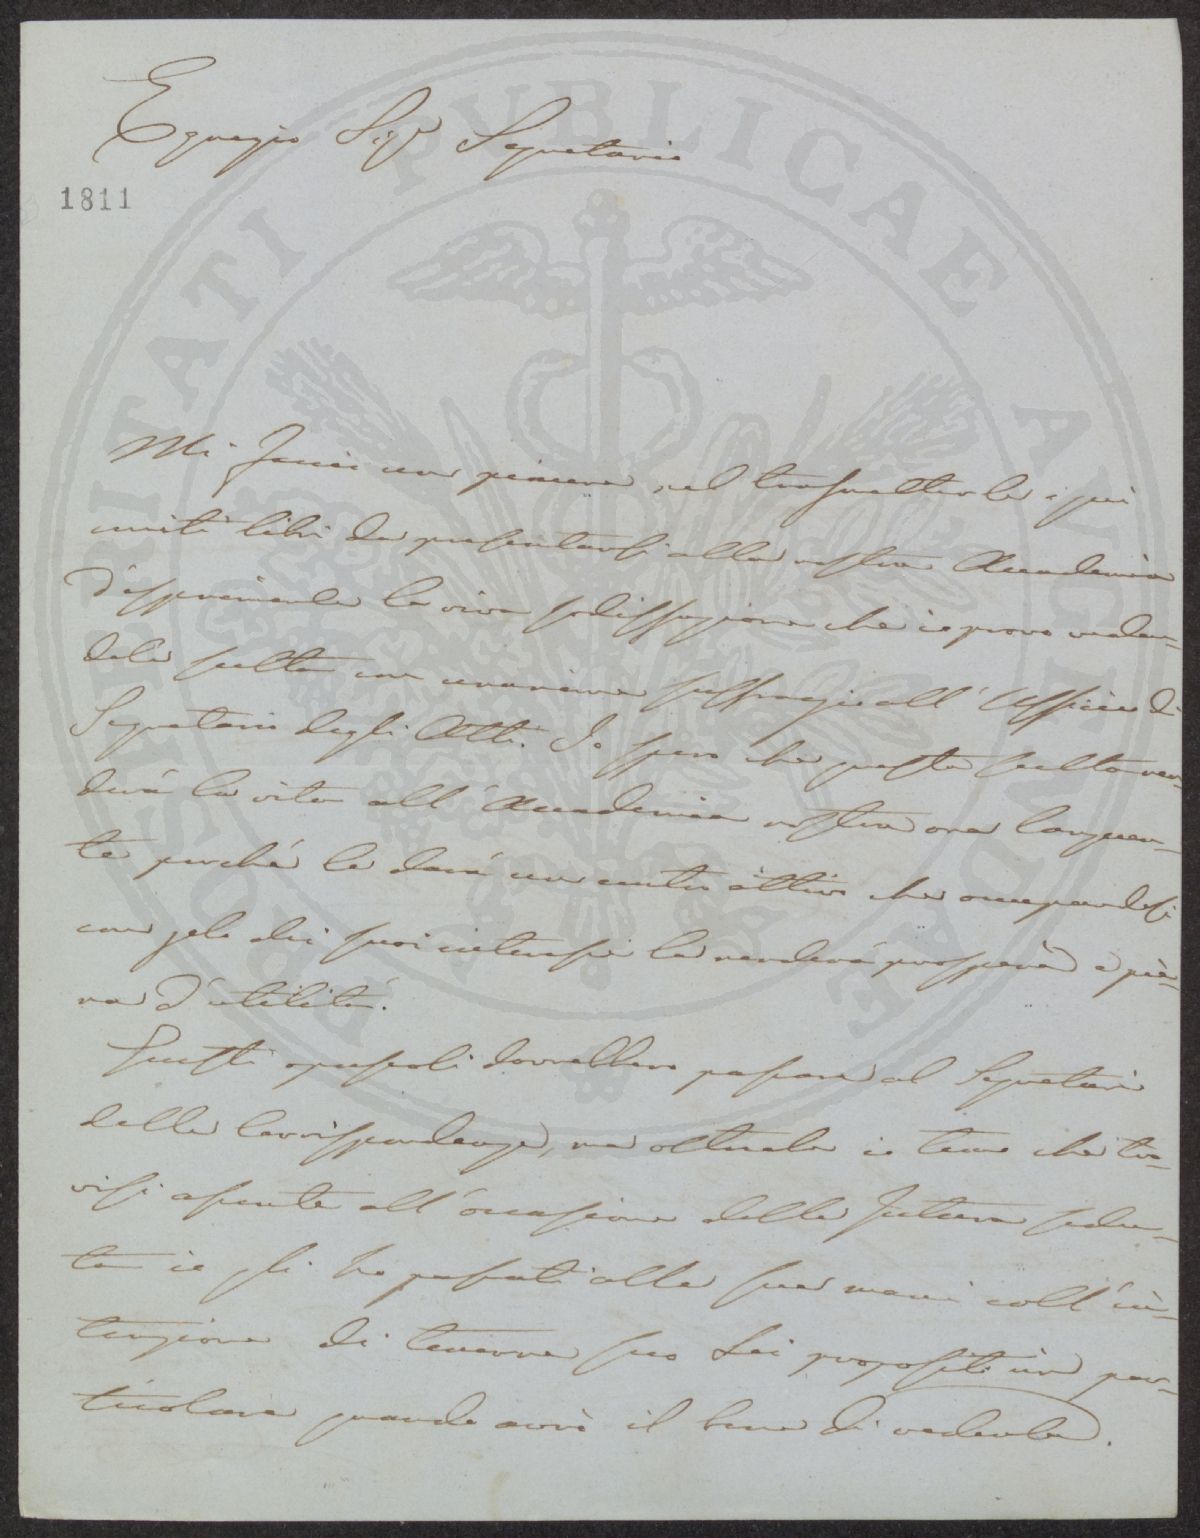 Egregio Sigr Segretario
1811
PROSPERITATI PUBLICAE AUGENDAE
Mi faccio un piacere nel trasmetterle i qui
uniti libri da presentarsi alla nostra Accademia
d'esprimerle la viva sodisfazione che io provo veden-
dola scelta con unanime suffragio all'Officio di
Segretario degli Atti. Io spero che questa scelta ren-
derà la vita all'Accademia nostra ora languen-
te perchè le darà un centro attivo che occupandosi
con zelo dei suoi interessi la renderà prospera e pie-
na d'utilità.
Questi opuscoli dovrebbero passare al Segretario
delle Corrispondenze, ma oltre che io temo che tro-
visi assente all'occasione della futura sedu-
ta io gli ho passati alle sue mani coll'in-
tenzione di tenerne seco Lei proposito in par-
ticolare quando avrò il bene di vederla.